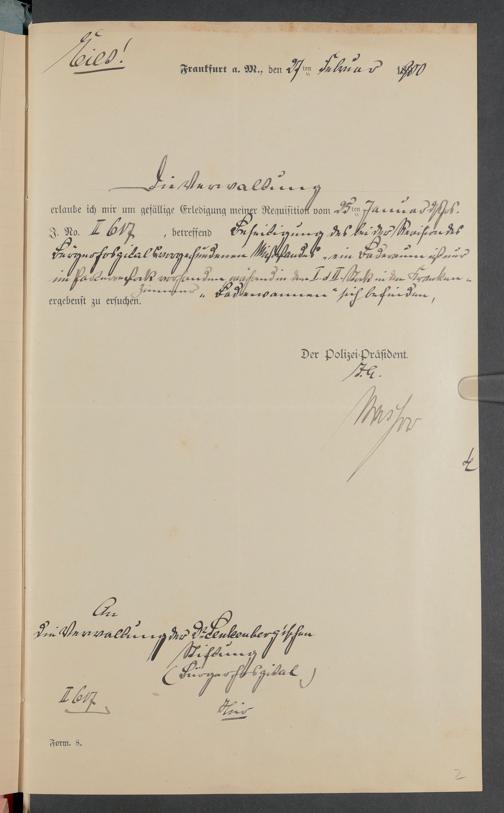 Eilt!
Frankfurt a. M., den 27ten Februar 1900
Die Verwaltung
erlaube ich mir um gefällige Erledigung meiner Requisition vom 25ten Januar ds Js.
J. No. II 617, betreffend Beseitigung des bei der Revision des
Bürgerhospitals vorgefundenen Mißstandes „ein Baderaum ist nur
im Parterrestock vorhanden während in den I u II Stock in den Kranken-
zimmer „Badewannen" sich befinden,
ergebenst zu ersuchen.
Der Polizei-Präsident.
I. A.
An
die Verwaltung der Dr Senkenberg'schen
Stiftung
(Bürgerhospital)
II 617
Hier
Form. 8.
2